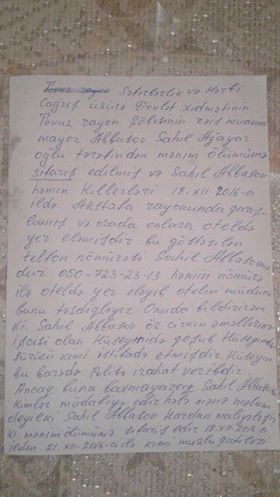 Tovuz rayon Səfərbərlik və Hərbi
Çağırış üzrə Dövlət Xidmətinin
Tovuz rayon Şöbəsinin rəis müavini
mayor Abbasov Sahil Ağayar
oğlu tərəfindən mənim ölümümə
sifariş edilmiş və Sahil Abbasov
həmin Killerləri 18.XII.2016-ci
ildə Akstafa rayonunda qarşı-
lamış və orada onlara oteldə
yer eləmişdir bu göstərilən
telfon nömrəsi Sahil Abbasovun
dur 050-723-23-13 həmin nömrə
ilə oteldə yer eləyib otelin müdürü
bunu təsdiqləyir. Onuda bildirirəm
ki. Sahil Abbasov öz çirkin əməllərinə
işçisi olan Hüseynidə qoşub Hüseyndən
sürücü kimi istifadə etmişdir Hüseyn
bu barədə Polisə izahat veribdir.
Ancaq buna baxmayaraq Sahil Abbasov
kimlər müdafiyə edir hələ mənə məlum
deyil ki Sahil Abbasov Hardan maliyələşir
ki mənim ölümümə sifariş edir 18.XII.2016-ci
ildən 21.XII.2016-ci ilə kimi